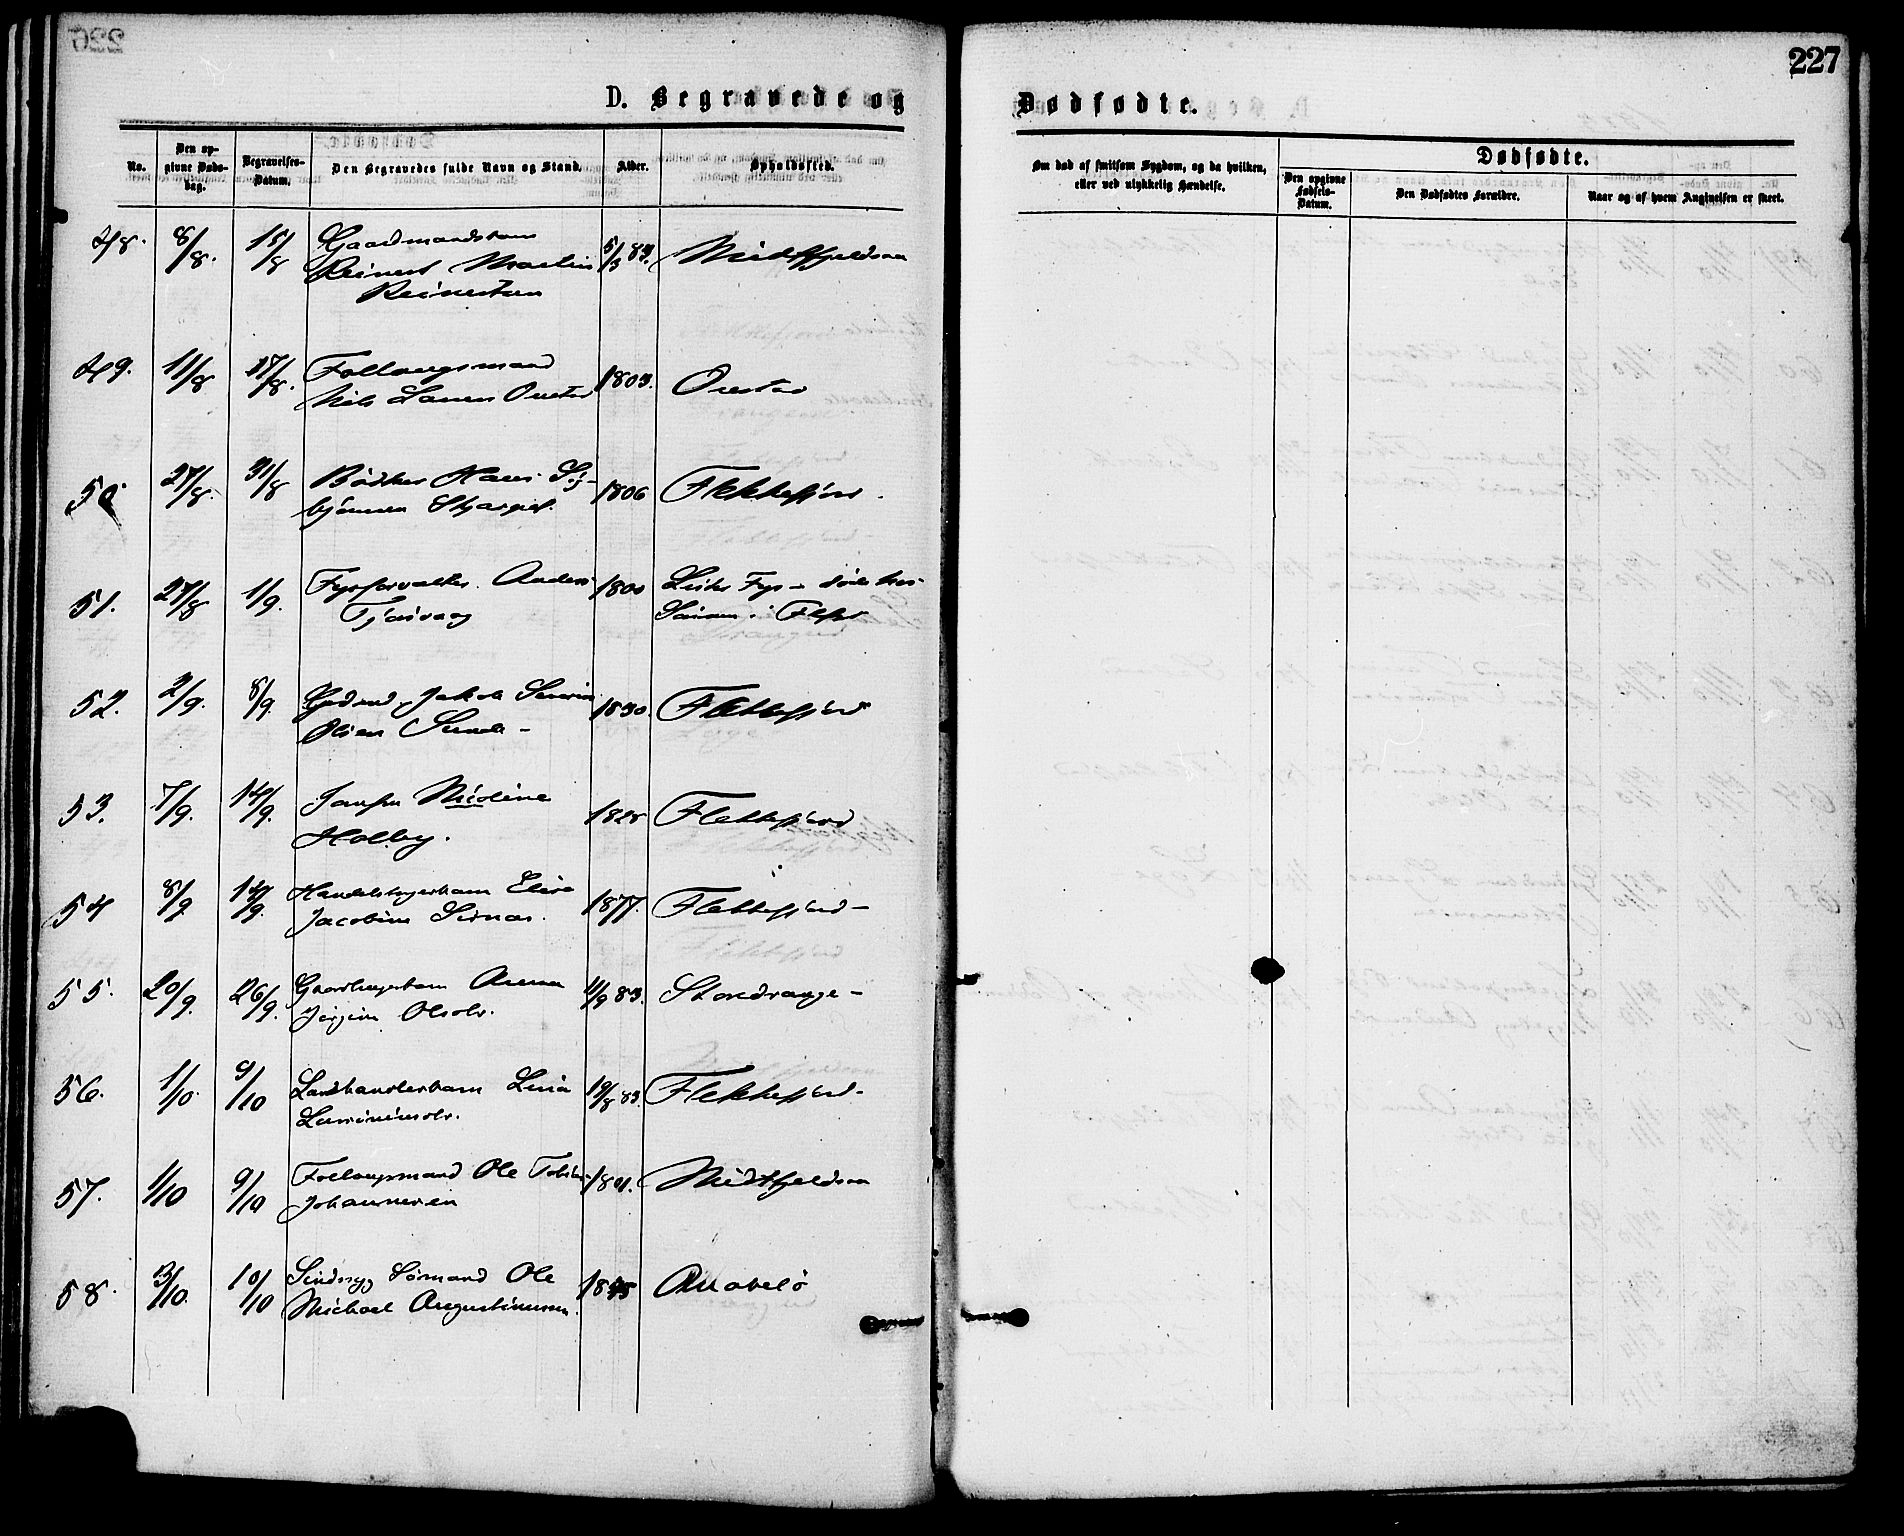 227
D. Begravede og
Dødfødte.
No.
Den opgivne Dødsdag.
Begravelses-Datum.
Den Begravedes fulde Navn og Stand.
Alder.
Opholdssted.
Om død af smitsom Sygdom, og da hvilken, eller ved ulykkelig Hændelse.
Dødfødte.
Den opgivne Fødsels-Datum.
Den Dødfødtes Forældre.
Naar og af hvem Angivelsen er skeet.
48. 8/8. 15/8 Gaardmandsbarn 5/3 83. Midtfjeldsaa
Reinert Martin
Reinertsen
49. 11/8 17/8. Follaugsmand 1803. Ouestad
Nils Larsen Ouestad
50 27/8. 31/8 Bødker Hans 1806 Flekkefjord.
51. 27/8 1/9. Fyrforvalter Anders 1800 Lister Fyr
Tjørsvaag
52. 2/9. 8/9. Jakob Severin 1830. Flekkefjord
Olsen Sunde
53. 7/9. 14/9. Jomfru Nicoline 1825 Flekkefjord
Holby.
54 8/9 14/9. Elise 1877. Flekkefjord
Jacobine Sirnas.
55. 20/9. 26/9. Anna 11/9 83. Stordrange
Jørgine Olsdtr.
56. 1/10. 9/10 Landhandlerbarn Lina 19/8 83. Flekkefjord
57. 1/10 9/10 Follaugsmand Ole Tobias 1801. Midtfjeldsaa
Johannesen
58. 3/10. 10/10 Sindssyg Sømand Ole 1845 Annabelø
Michael Augustinussen.